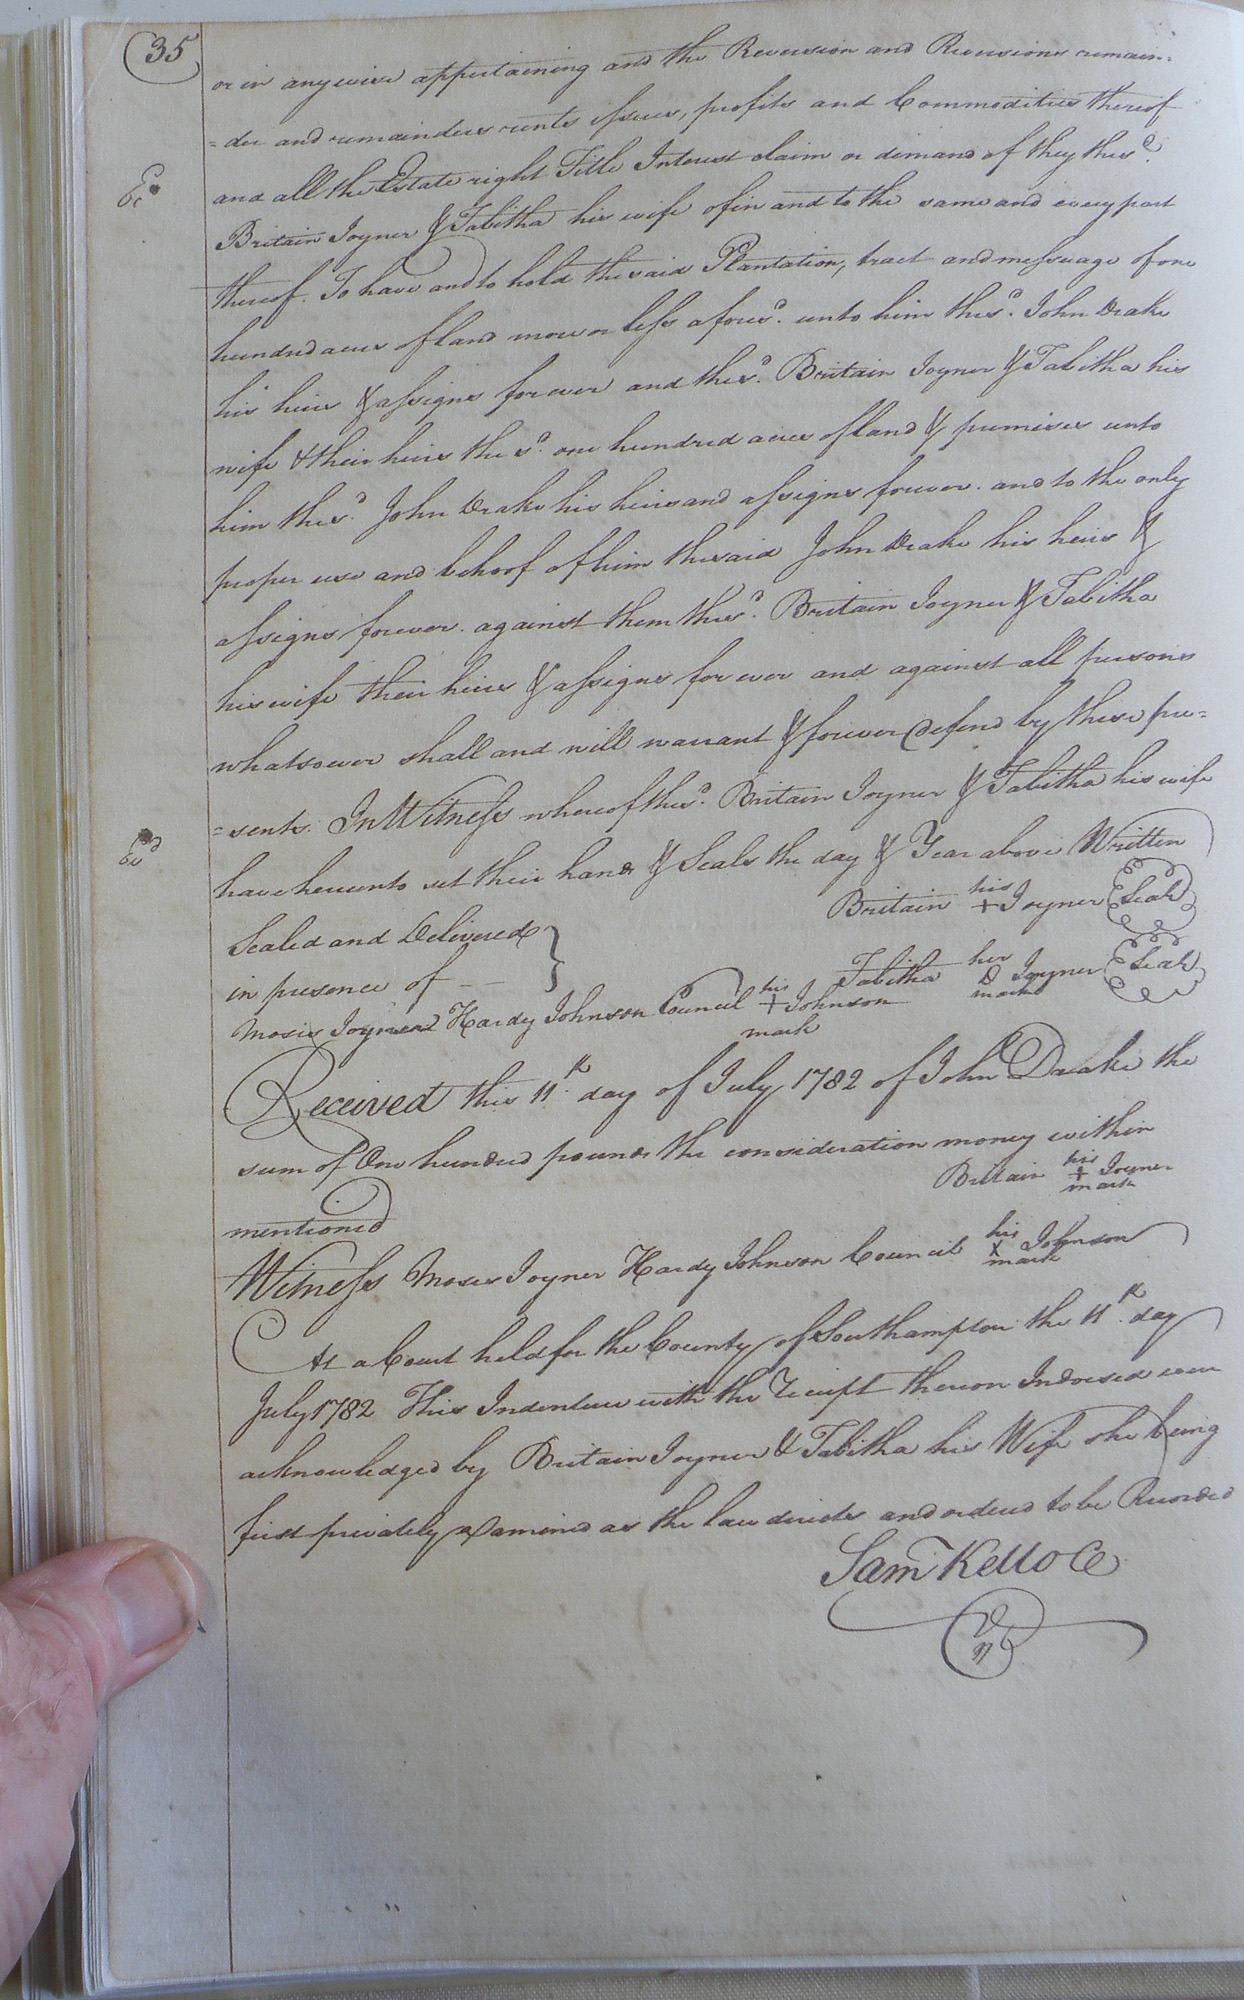 35
or in anywise appertaining and the Reversion and Reversions remain=
=der and remainders rents issues, profits and Commodities thereof
and all the Estate right Title Interest claim or demand of they the sd.
Britain Joyner & Tabitha his wife of in and to the same and every part
thereof. To have and to hold the said Plantation, tract and messuage of one
hundred acres of land more or less afores.d unto him the s.d John Drake
his heirs & assigns forever and the s.d Britain Joyner & Tabitha his
wife & their heirs the s.d one hundred acres of land & premises unto
him the s.d John Drake his heirs and assigns forever. and to the only
proper use and behoof of him the said John Drake his heirs &
assigns forever. against them the s.d Britain Joyner & Tabitha
his wife their heirs & assigns for ever and against all persons
whatsoever shall and will warrant & forever Defend by these pre=
=sents. In Witness whereof the s.d Britain Joyner & Tabitha his wife
have hereunto set their hands & Seals the day & Year above Written
Britain his + Joyner Seal
Sealed and Delivered
in presence of
Tabitha her D mark Joyner Seal
Moses Joyner Hardy Johnson Council his + mark Johnson
Received this 11th. day of July 1782 of John Drake the
sum of One hundred pounds the consideration money within
mentioned
Britain his + mark Joyner
Witness Moses Joyner Hardy Johnson Council his X mark Johnson
At a Court held for the County of Southampton the 11th. day
July 1782 This Indenture with the Receipt thereon Indorsed were
acknowledged by Britain Joyner & Tabitha his Wife she being
first privately examined as the law directs and ordered to be Recorded
Sam Kello Ce